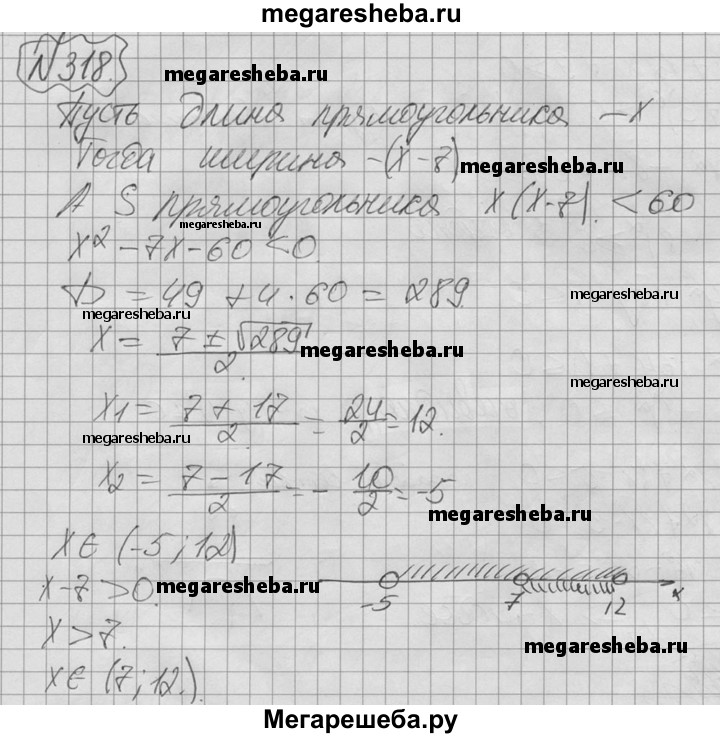 megaresheba.ru
№318.
megaresheba.ru
Пусть длина прямоугольника – x
Тогда ширина – (x – 7)
megaresheba.ru
А S прямоугольника x(x-7) < 60
x² – 7x – 60 < 0.
D = 49 + 4 · 60 = 289.
megaresheba.ru
megaresheba.ru
x = (7 ± √289)/2.
megaresheba.ru
megaresheba.ru
x₁ = (7 + 17)/2 = 24/2 = 12.
megaresheba.ru
x₂ = (7 – 17)/2 = – 10/2 = -5
megaresheba.ru
x ∈ (-5; 12)
x-7 > 0.
megaresheba.ru
-5 7 12 x
x > 7.
megaresheba.ru
x ∈ (7; 12.).
Мегарешеба.ру